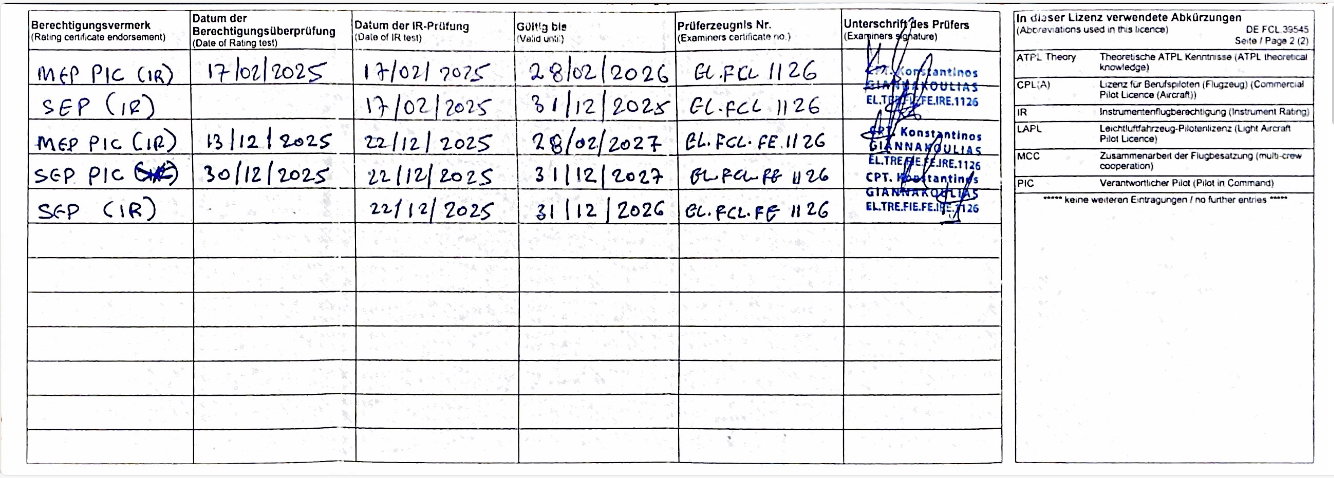 Berechtigungsvermerk
(Rating certificate endorsement)
Datum der
Berechtigungsüberprüfung
(Date of Rating test)
Datum der IR-Prüfung
(Date of IR test)
Gültig bis
(Valid until)
Prüferzeugnis Nr.
(Examiners certificate no.)
Unterschrift des Prüfers
(Examiners signature)
MEP PIC (IR) 17/02/2025 17/02/2025 28/02/2026 EL.FCL 1126
CPT. Konstantinos
GIANNAKOULIAS
EL.TRE.FIE.FE.IRE.1126
SEP (IR) 17/02/2025 31/12/2025 EL.FCL 1126
MEP PIC (IR) 13/12/2025 22/12/2025 28/02/2027 EL.FCL.FE.1126
CPT. Konstantinos
GIANNAKOULIAS
EL.TRE.FIE.FE.IRE.1126
SEP PIC 30/12/2025 22/12/2025 31/12/2027 EL.FCL.FE 1126
CPT. Konstantinos
GIANNAKOULIAS
EL.TRE.FIE.FE.IRE.1126
SEP (IR) 22/12/2025 31/12/2026 EL.FCL.FE 1126
In dieser Lizenz verwendete Abkürzungen
(Abbreviations used in this licence) DE FCL 39545
Seite / Page 2 (2)
ATPL Theory Theoretische ATPL Kenntnisse (ATPL theoretical
knowledge)
CPL(A) Lizenz für Berufspiloten (Flugzeug) (Commercial
Pilot Licence (Aircraft))
IR Instrumentenflugberechtigung (Instrument Rating)
LAPL Leichtluftfahrzeug-Pilotenlizenz (Light Aircraft
Pilot Licence)
MCC Zusammenarbeit der Flugbesatzung (multi-crew
cooperation)
PIC Verantwortlicher Pilot (Pilot in Command)
***** keine weiteren Eintragungen / no further entries *****